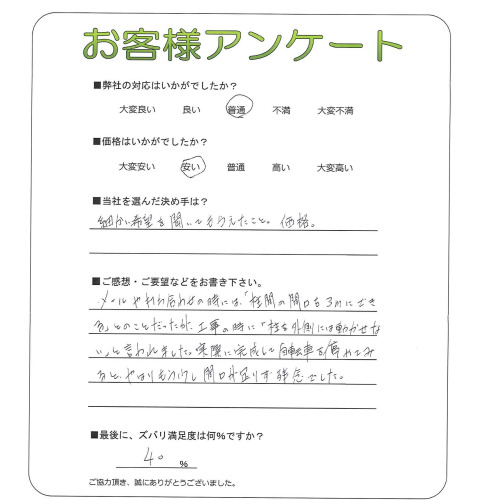 お客様アンケート
■弊社の対応はいかがでしたか？
大変良い 良い 普通 不満 大変不満
■価格はいかがでしたか？
大変安い 安い 普通 高い 大変高い
■当社を選んだ決め手は？
細かい希望を聞いてもらえたこと。 価格。
■ご感想・ご要望などをお書き下さい。
メールやお問合わせの時には、「柱間の間口を3mにでき
る」とのことだったが、工事の時に「柱を外側には動かせな
い」と言われました。実際に完成して自転車を停めてみ
ると、やはりもう少し間口が足りず残念でした。
■最後に、ズバリ満足度は何%ですか？
40 %
ご協力頂き、誠にありがとうございました。